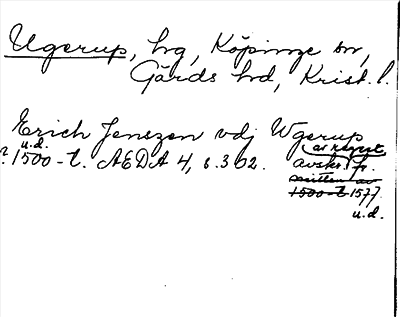 Ugerup, hg, Köpinge sn,
Gärds hd, Krist. l.
Erich Jenszen vdj Wgerup
u.d.
? 1500-t. AEDA 4, s. 362. avskr. fr.
mitten av
1500-t 1577.
u.d.